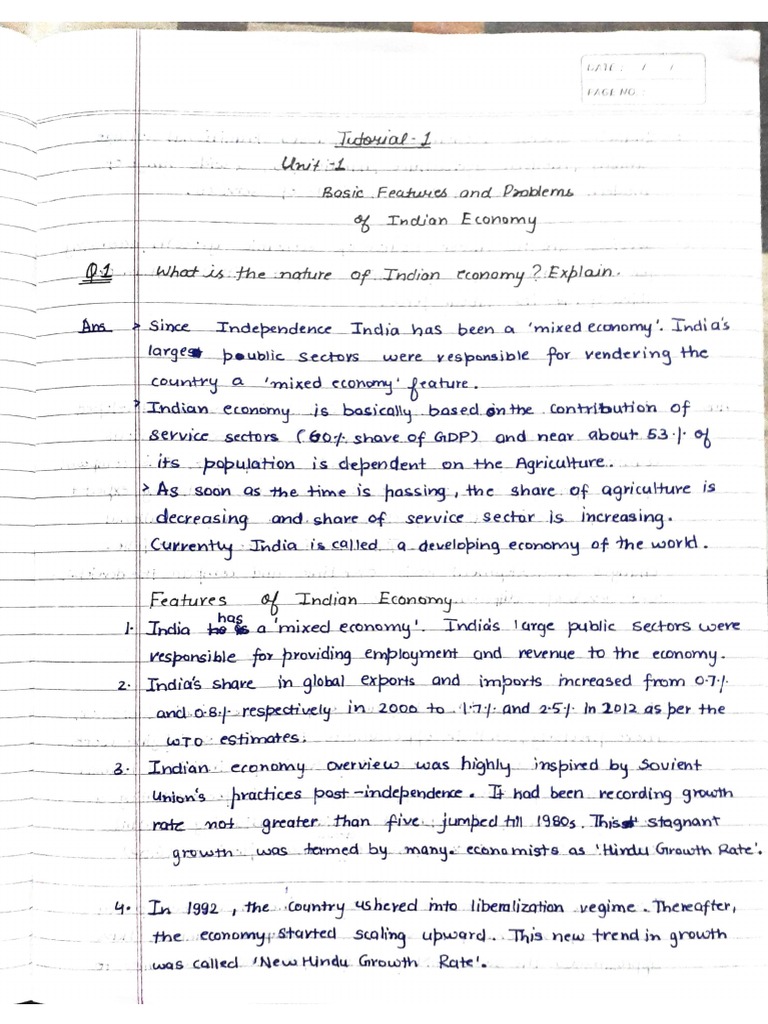 DATE: / /
PAGE NO.:
Tutorial-1
Unit-1
Basic Features and Problems
of Indian Economy
Q.1 What is the nature of Indian economy? Explain.
Ans > Since Independence India has been a 'mixed economy'. India's
large public sectors were responsible for rendering the
country a 'mixed economy' feature.
> Indian economy is basically based on the contribution of
service sectors (60% share of GDP) and near about 53% of
its population is dependent on the Agriculture.
> As soon as the time is passing, the share of agriculture is
decreasing and share of service sector is increasing.
Currently India is called a developing economy of the world.
Features of Indian Economy
1. India has a 'mixed economy'. India's large public sectors were
responsible for providing employment and revenue to the economy.
2. India's share in global exports and imports increased from 0.7%
and 0.8% respectively in 2000 to 1.7% and 2.5% in 2012 as per the
WTO estimates.
3. Indian economy overview was highly inspired by Sovient
Union's practices post-independence. It had been recording growth
rate not greater than five jumped till 1980s. This stagnant
growth was termed by many economists as 'Hindu Growth Rate'.
4. In 1992, the country ushered into liberalization regime. Thereafter,
the economy started scaling upward. This new trend in growth
was called 'New Hindu Growth Rate'.